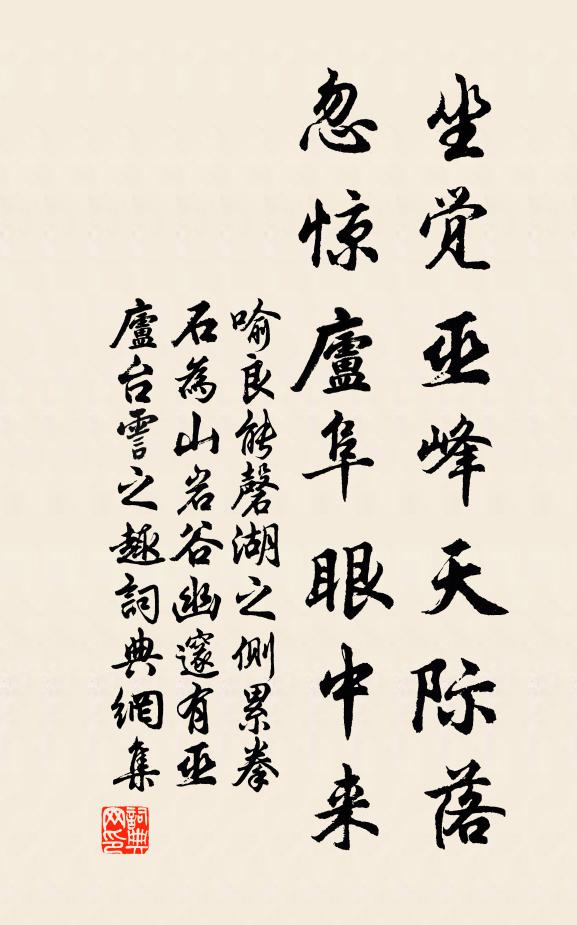 坐觉巫峰天际落
忽惊廬阜眼中来
喻良能磬湖之側累拳
石為山岩谷幽邃有巫
廬台霅之趣詞典網集
詞典
网印